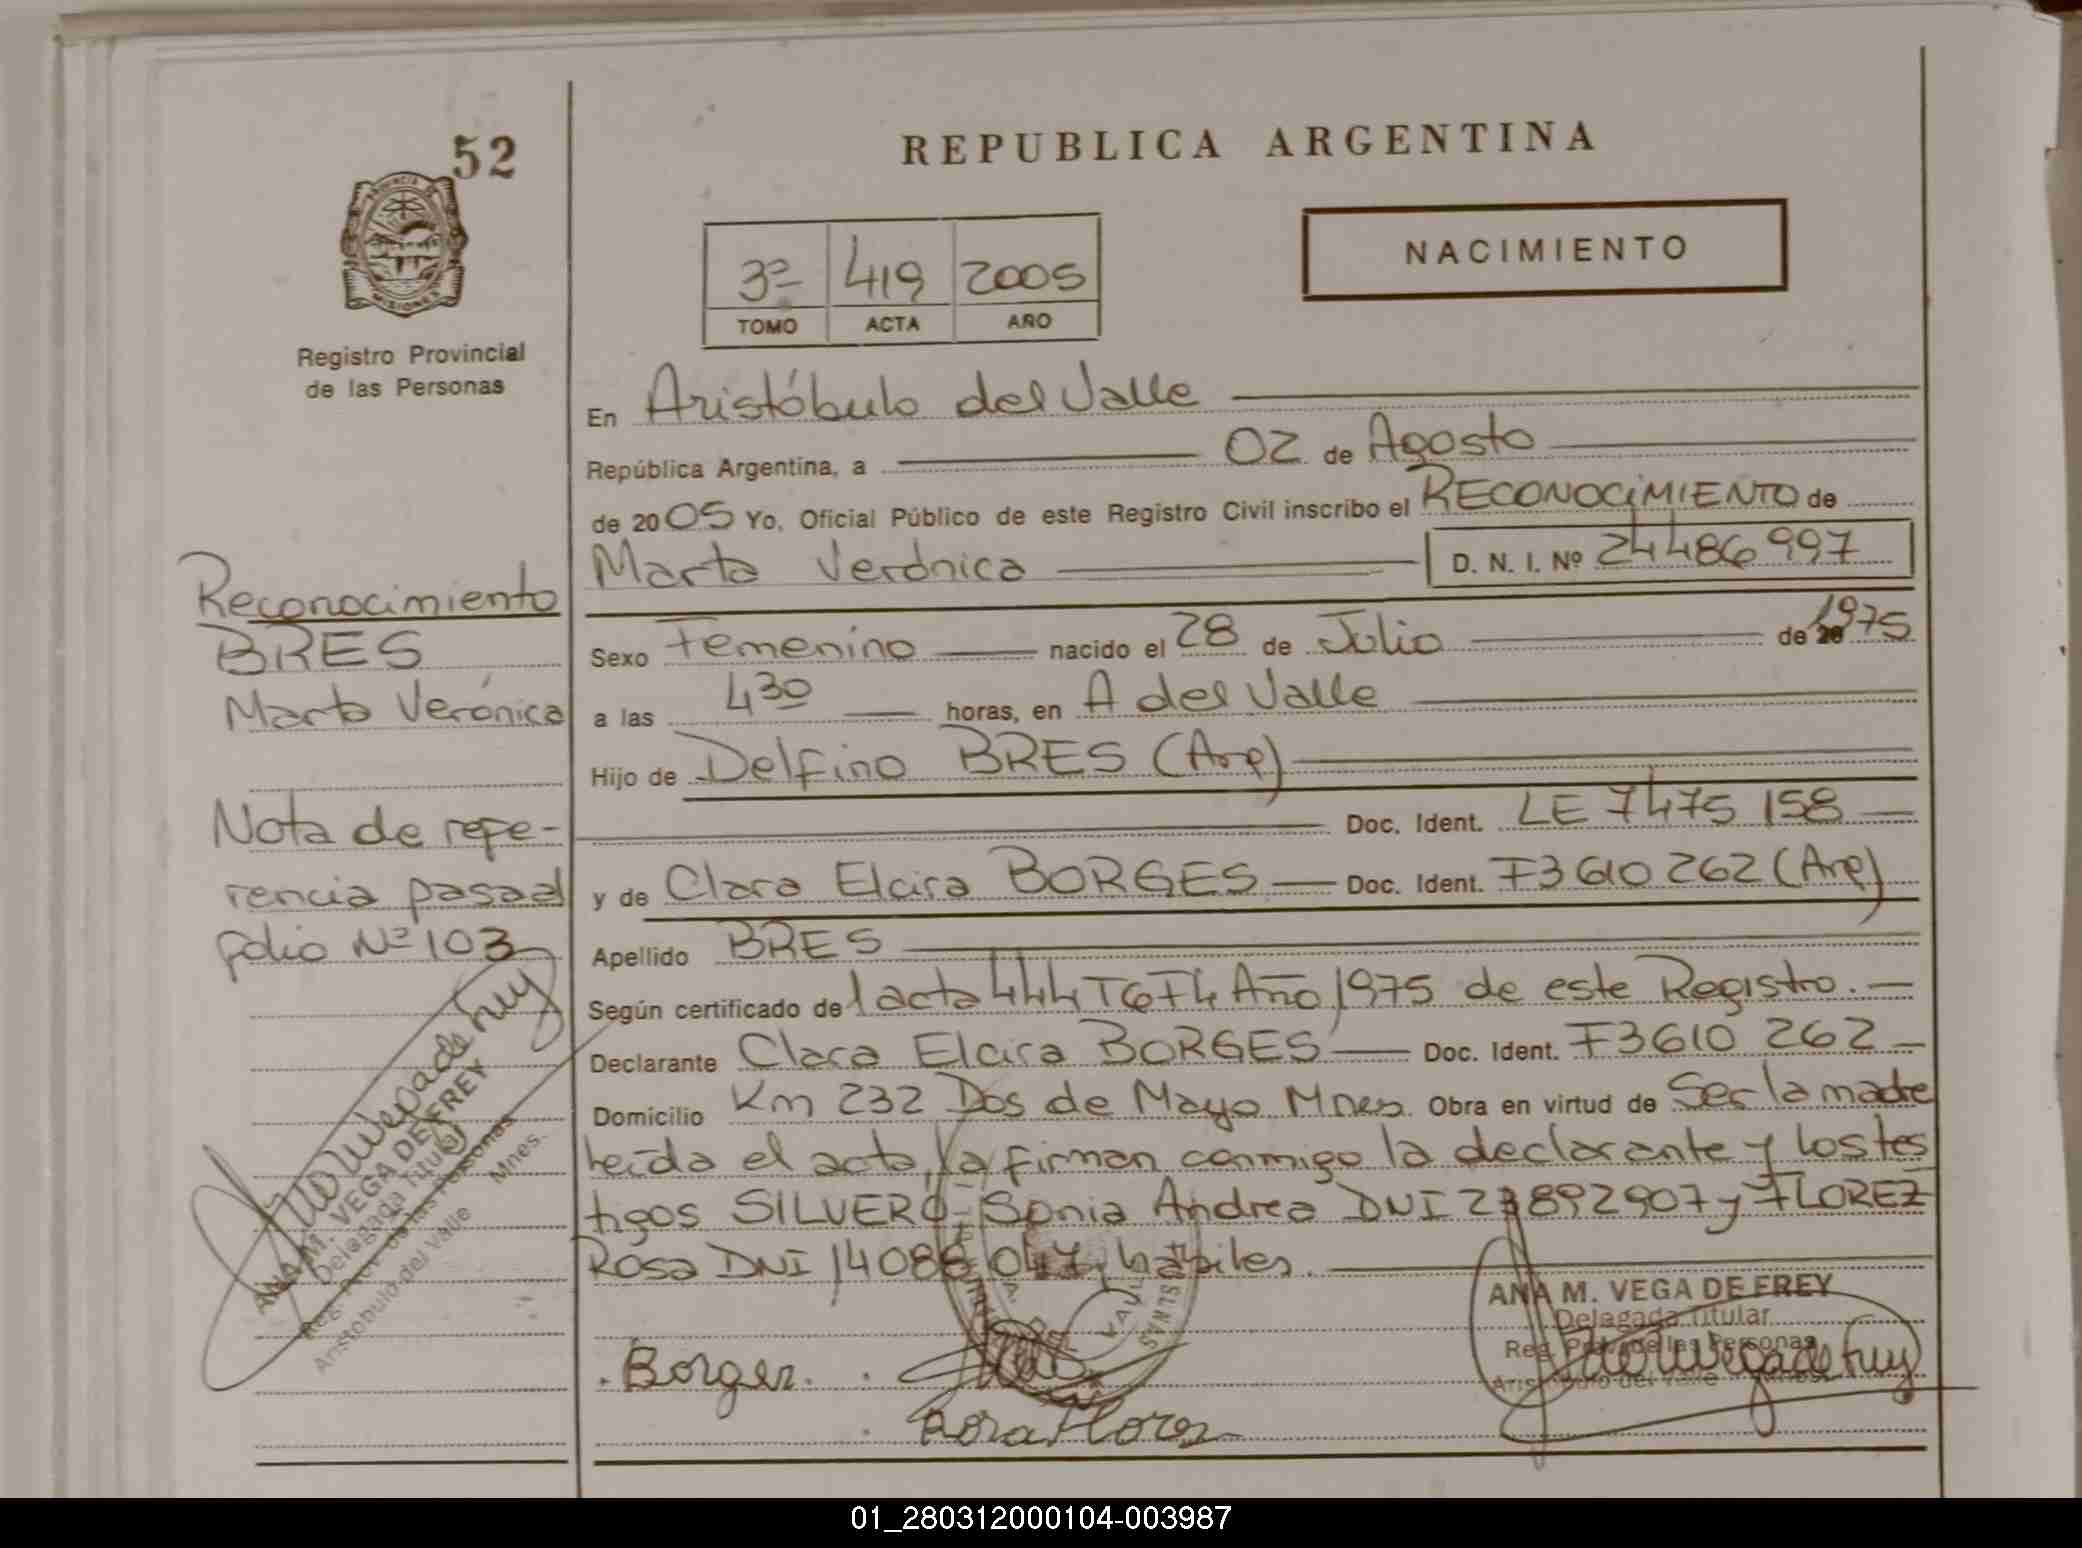 52
REPUBLICA ARGENTINA
PROVINCIA DE
MISIONES
Registro Provincial
de las Personas
NACIMIENTO
3º 419 2005
TOMO ACTA AÑO
En Aristóbulo del Valle
República Argentina, a 02 de Agosto
de 2005 Yo, Oficial Público de este Registro Civil inscribo el RECONOCIMIENTO de
Marta Verónica D. N. I. Nº 24486997
Sexo Femenino nacido el 28 de Julio de 20 1975
a las 4 30 horas, en A del Valle
Hijo de Delfino BRES (Arg)
Doc. Ident. LE 7475 158
y de Clara Elcira BORGES Doc. Ident. F3610262 (Arg)
Apellido BRES
Según certificado de l acta 444 T6F4 Año 1975 de este Registro.
Declarante Clara Elcira BORGES Doc. Ident. F3610 262
Domicilio Km 232 Dos de Mayo Mnes. Obra en virtud de Ser la madre
leída el acta, la firman conmigo la declarante y los tes
tigos SILVERO Sonia Andrea DNI 892907 y FLOREZ
Rosa DNI 14088 hábiles.
Reconocimiento
BRES
Marta Verónica
Nota de refe-
rencia pasa al
folio Nº 103
ANA M. VEGA DE FREY
Delegada Titular
Reg. de las Personas
Aristobulo del Valle Mnes.
ANA M. VEGA DE FREY
Delegada Titular
Reg. Prov. de las Personas
Aristobulo del Valle
Borges.
Rosa Florez
01_280312000104-003987